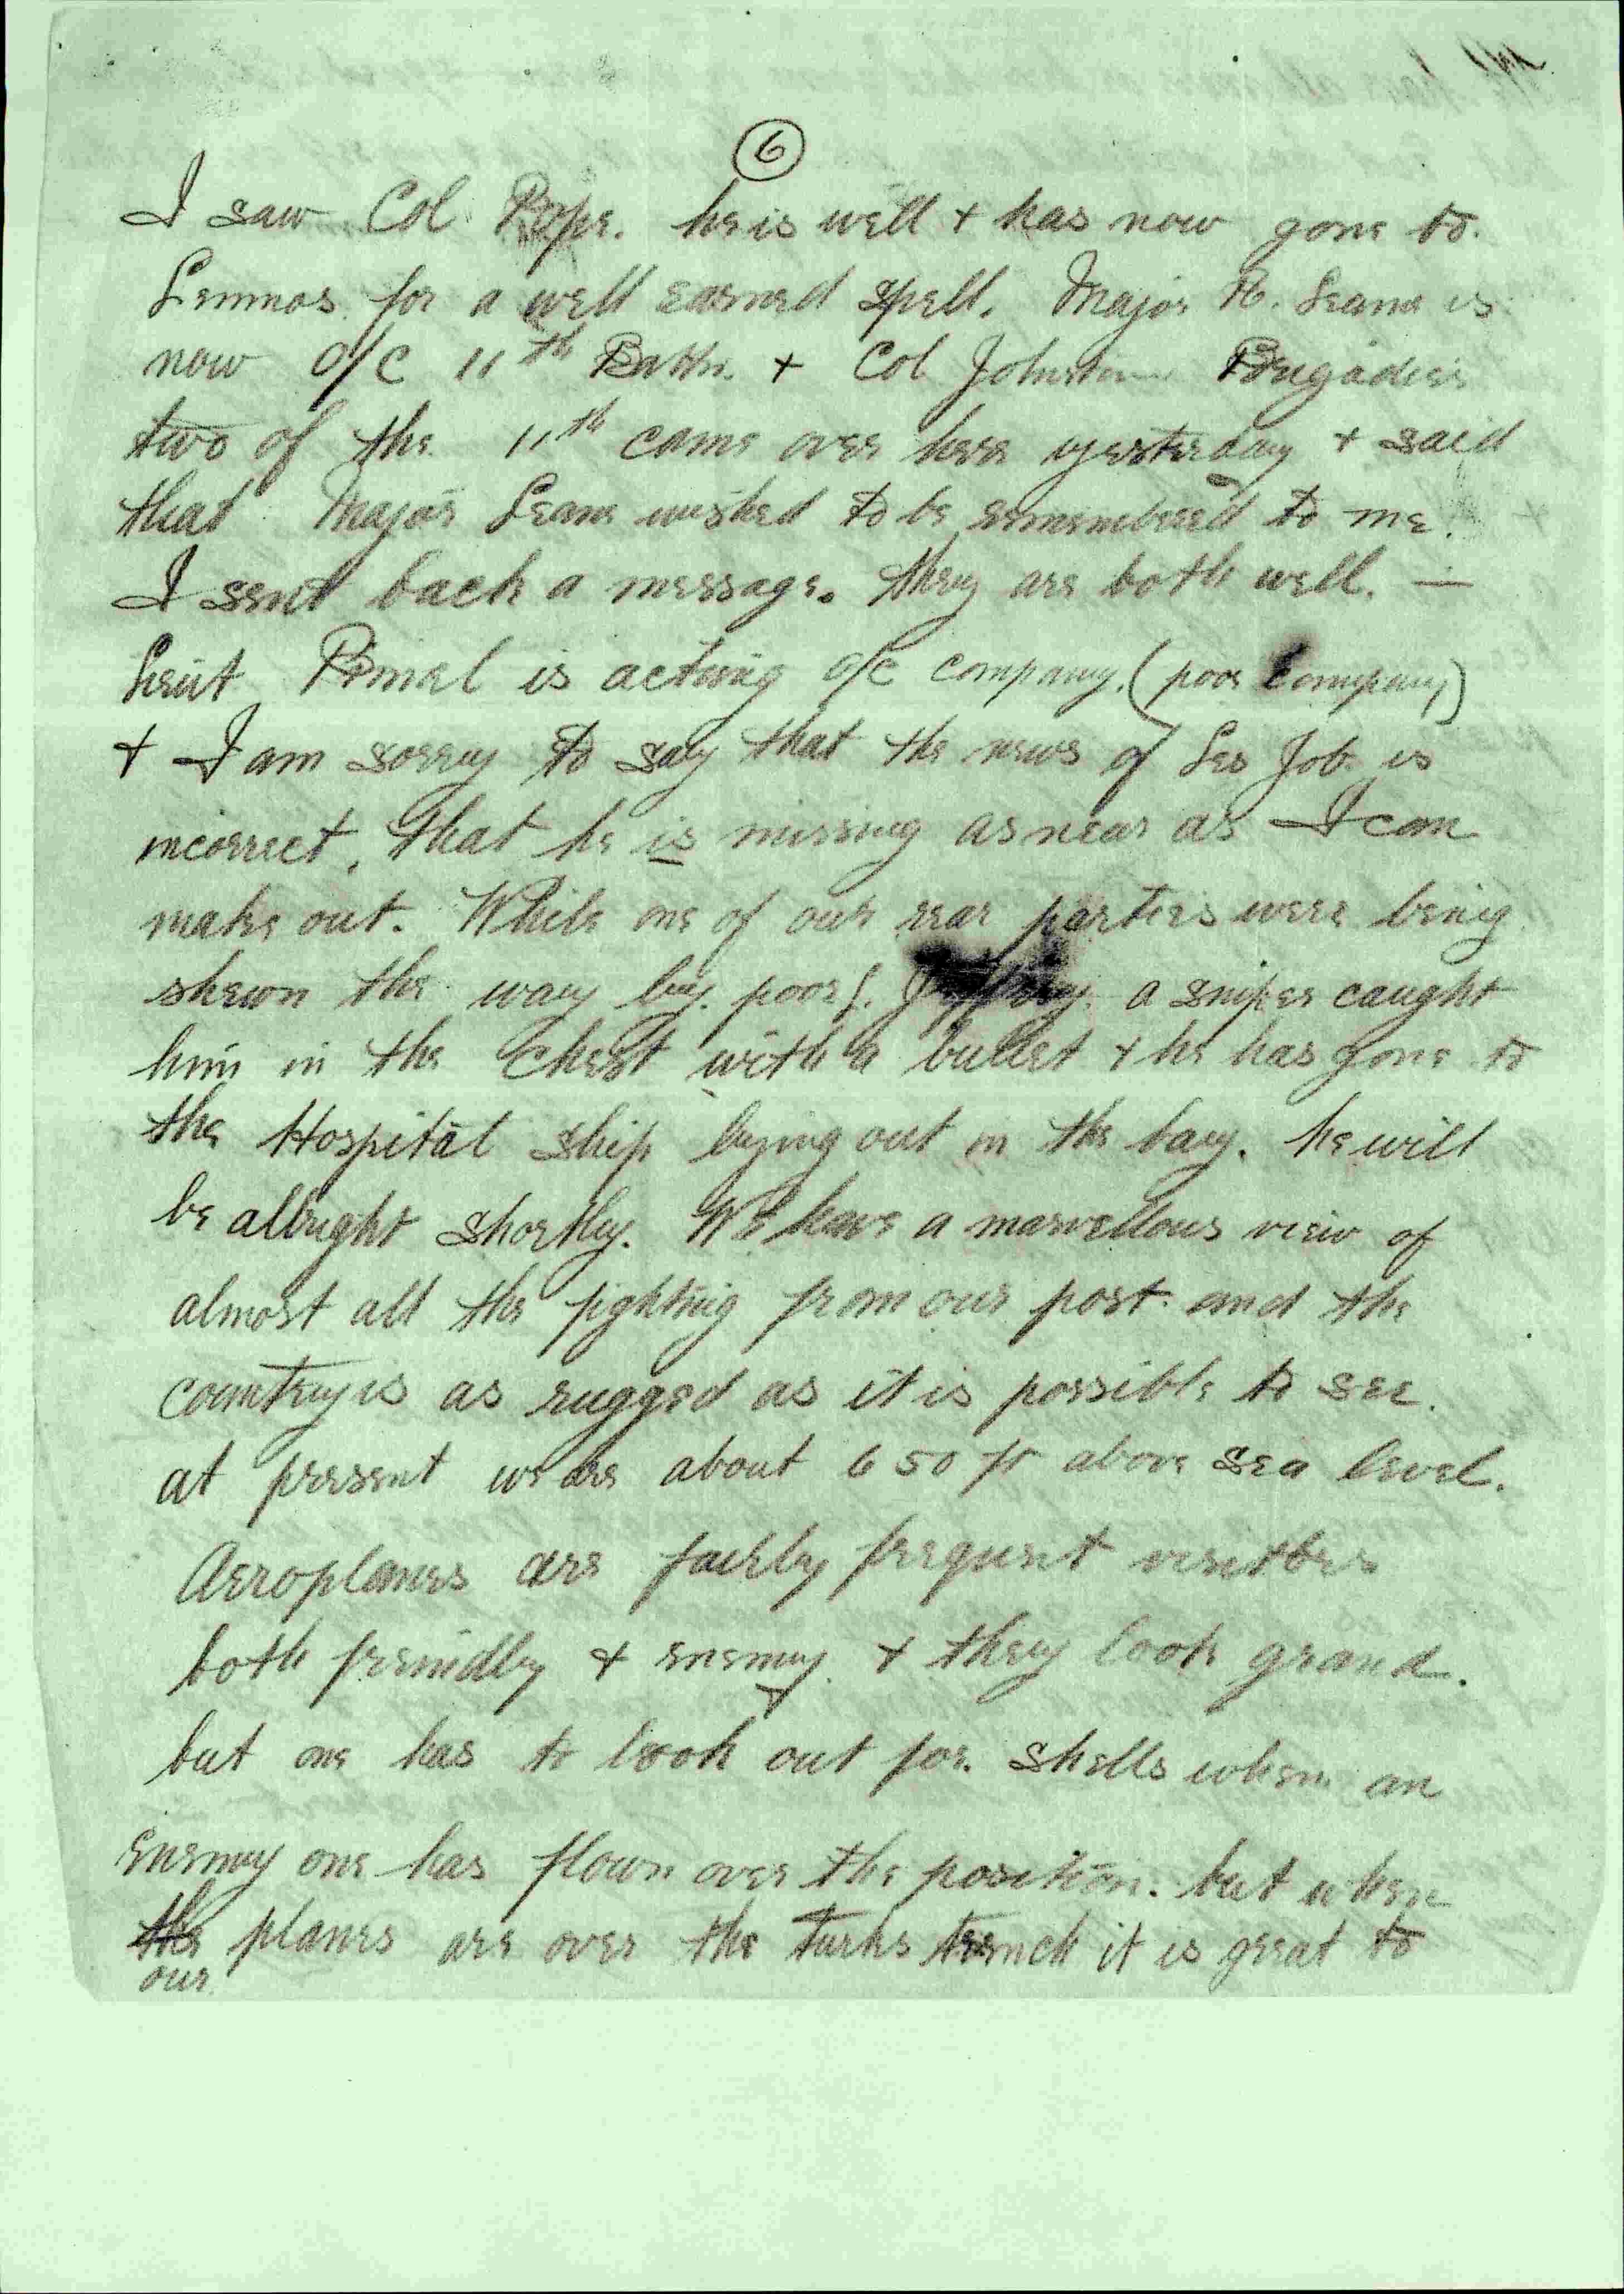 6
I saw Col Pope. he is well + has now gone to
Lemnos for a well earned spell. Major R. Leane is
now O/C 11th Battn. + Col Johnston Brigadier
two of the 11th came over here yesterday + said
that Major Leane wished to be remembered to me.
I sent back a message. they are both well. —
Lieut is acting O/C company. (poor Company)
+ I am sorry to say that the news of Les Job is
incorrect, that he is missing as near as I can
make out. While one of our rear parties were being
shewn the way by poor a sniper caught
him in the Chest with a bullet + he has gone to
the Hospital ship lying out in the bay. he will
be allright shortly. We have a marvellous view of
almost all the fighting from our post and the
country is as rugged as it is possible to see.
at present we are about 650 ft above sea level.
Aeroplanes are fairly frequent visitors
both freindly + enemy + they look grand.
but one has to look out for shells when an
enemy one has flown over the position. but when
the planes are over the Turks trench it is great to
our